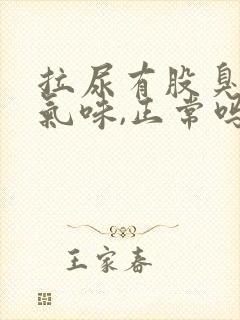 拉尿有股臭
氣味,正常嗎
王家春